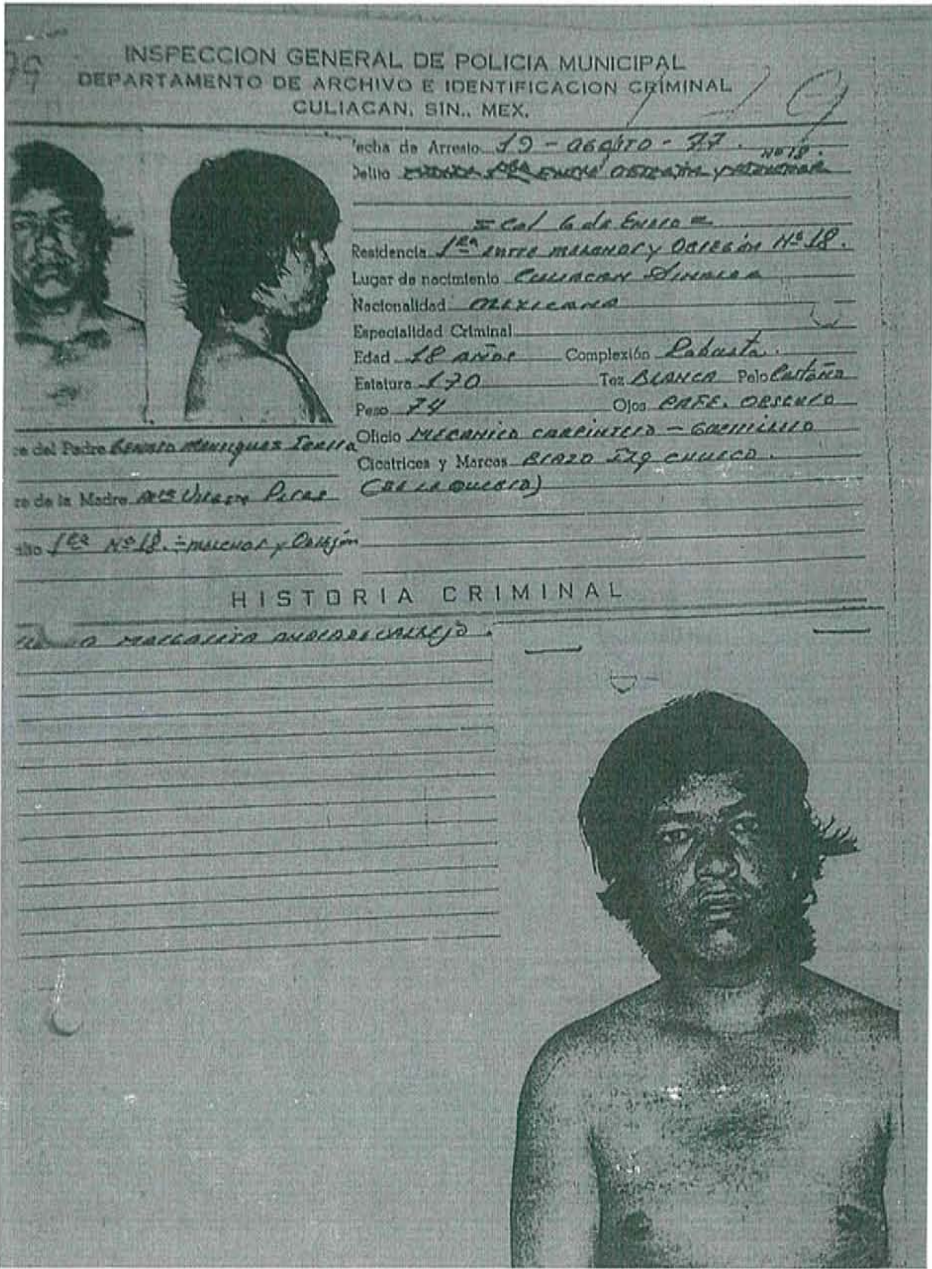 INSPECCION GENERAL DE POLICIA MUNICIPAL
DEPARTAMENTO DE ARCHIVO E IDENTIFICACION CRIMINAL
CULIACAN, SIN., MEX.
echa de Arresto 19 - AGOSTO - 77.
Nº 18.
Delito
= Col 6 de Enero =
Residencia 1ra entre MELCHOR y OBREGÓN Nº 18.
Lugar de nacimiento CULIACAN SINALOA
Nacionalidad MEXICANA
Especialidad Criminal
Edad 18 AÑOS Complexión Robusta.
Estatura 170 Tez BLANCA Pelo Castaño
Peso 74 Ojos CAFE. OBSCURO
re del Padre
Oficio MECANICO CARPINTERO -
Cicatrices y Marcas BRAZO IZQ CHUECO.
re de la Madre
(SE LO QUEBRO)
1ra Nº 18. = MELCHOR y Obregón
HISTORIA CRIMINAL
A MARGARITA ANDRADE VALLEJO.